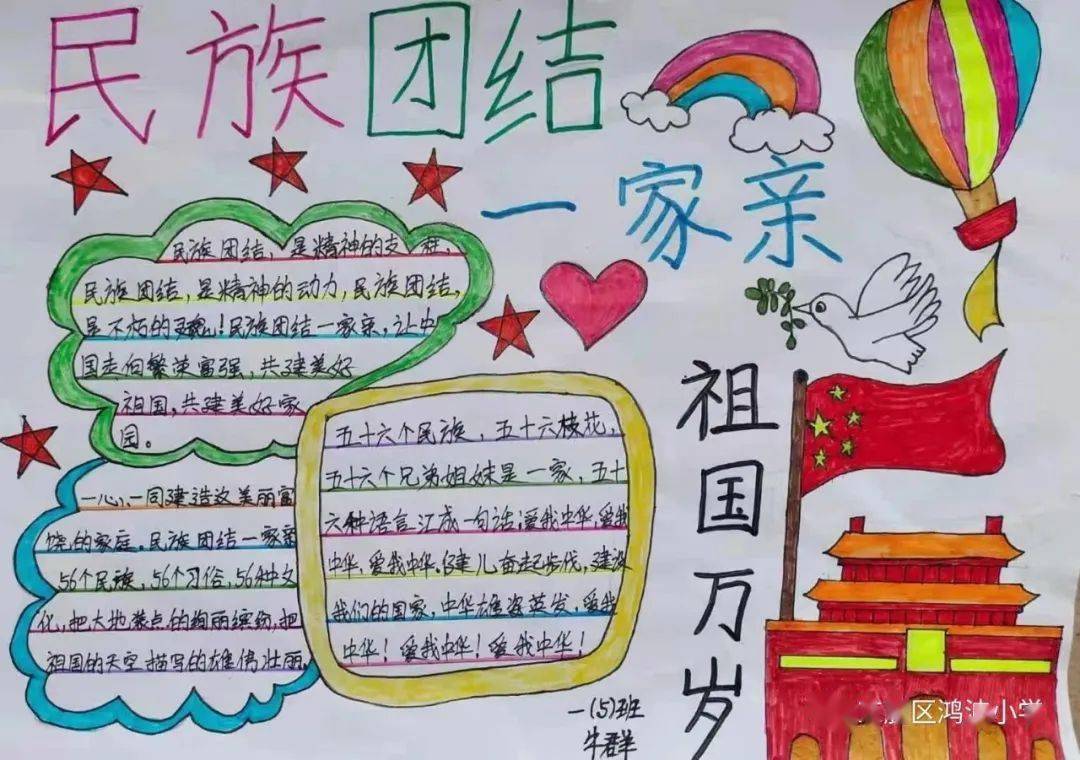 民族团结
一家亲
民族团结，是精神的支柱，
民族团结，是精神的动力，民族团结，
是不朽的灵魂！民族团结一家亲，让中
国走向繁荣富强，共建美好
祖国，共建美好家
园。
一心，一同建造这美丽富
饶的家庭。民族团结一家亲
56个民族，56个习俗，56种文
化，把大地装点的绚丽缤纷，把
祖国的天空描写的雄伟壮丽。
五十六个民族，五十六枝花，
五十六个兄弟姐妹是一家，五十
六种语言汇成一句话，爱我中华，爱我
中华，爱我中华，健儿奋起步伐，建设
我们的国家，中华雄姿英发，爱我
中华！爱我中华！爱我中华！
祖国万岁
一(5)班
牛群
区鸿波小学